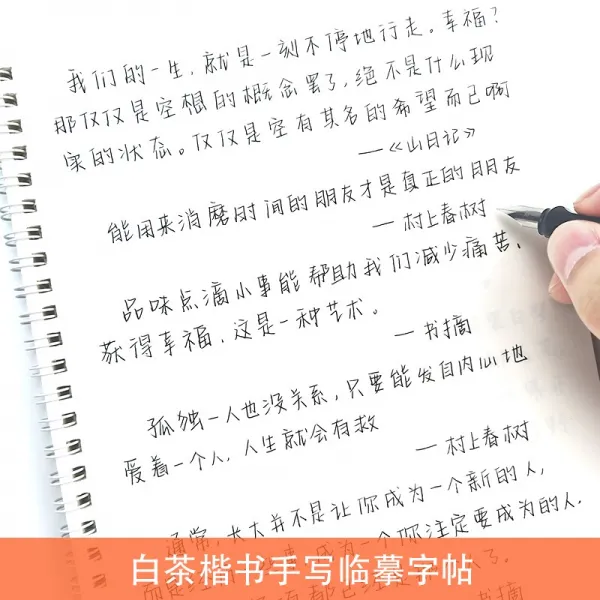 我们的一生，就是一刻不停地行走。幸福？
那仅仅是空想的概念罢了，绝不是什么现
实的状态。仅仅是空有其名的希望而已啊
—《山日记》
能用来消磨时间的朋友才是真正的朋友
—村上春树
品味点滴小事能帮助我们减少痛苦、
获得幸福，这是一种艺术。
—书摘
孤独一人也没关系，只要能发自内心地
爱着一个人，人生就会有救
—村上春树
通常，长大并不是让你成为一个新的人，
成为一个你注定要成为的人.
白茶楷书手写临摹字帖
了。
书摘